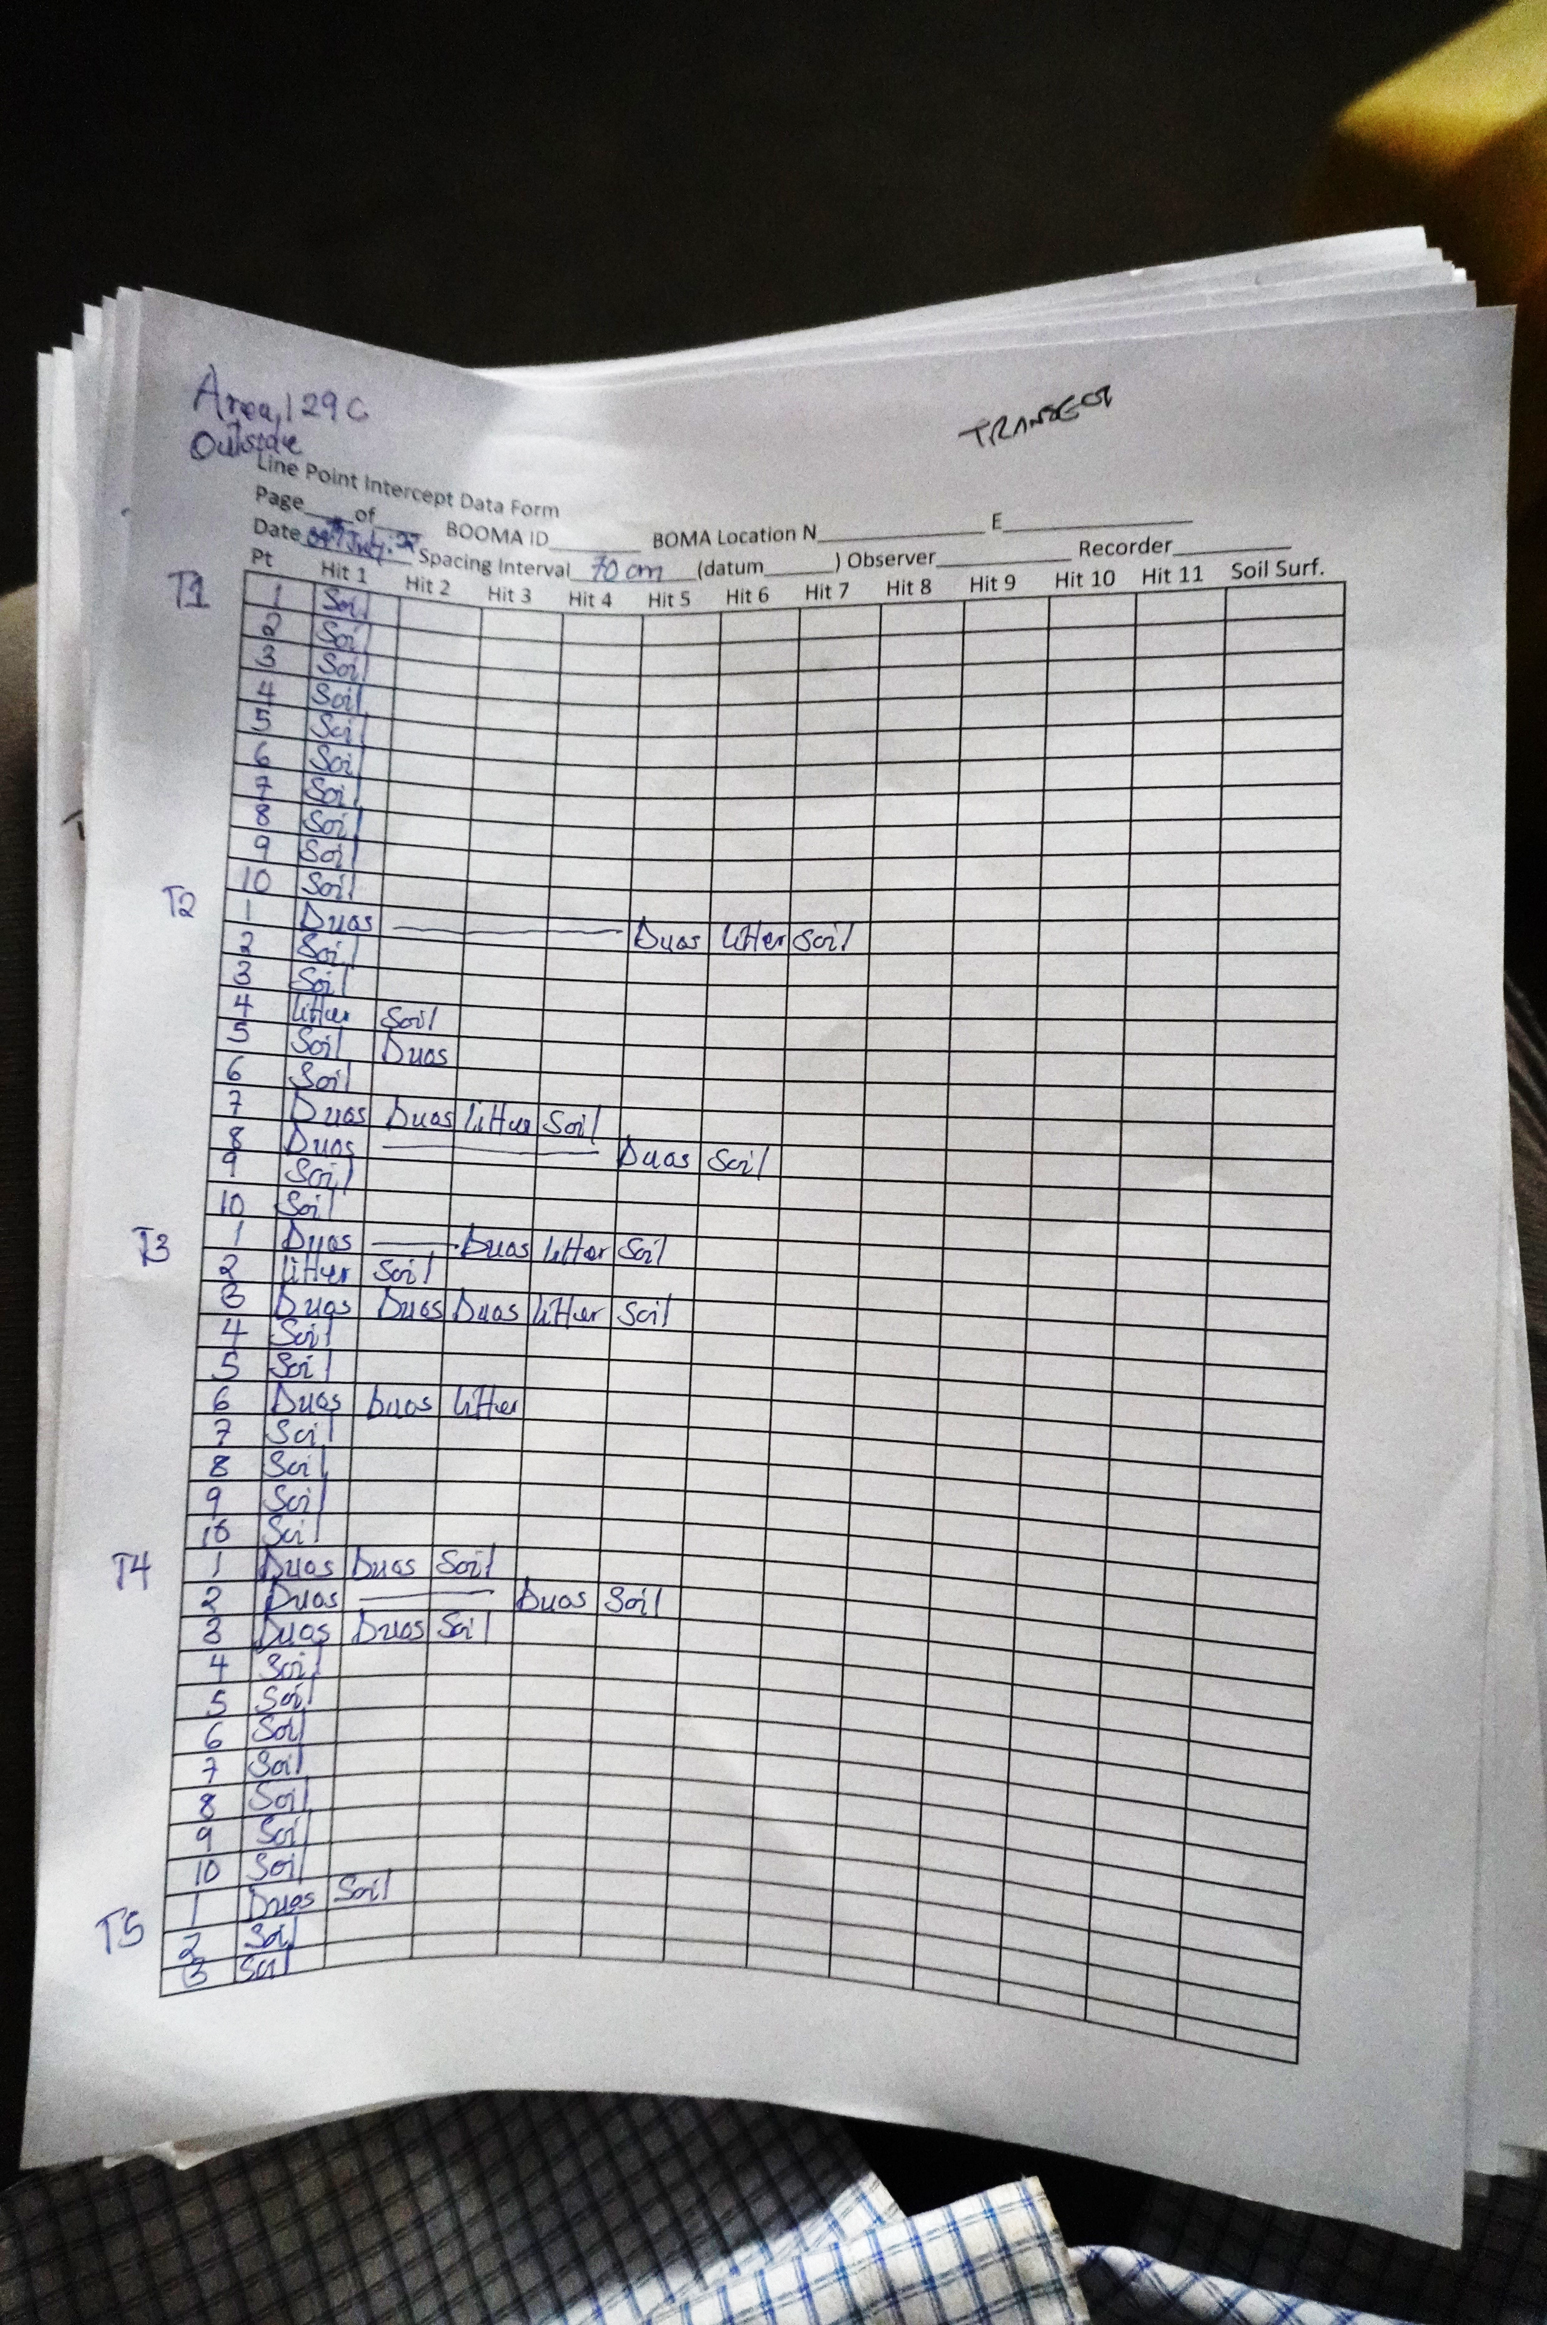 Area, 129C
Outside
TRANSECT
Line Point Intercept Data Form
Page____of____ BOOMA ID________ BOMA Location N_______________ E_________________
Date July Spacing Interval 70 cm (datum______) Observer____________ Recorder___________
Pt Hit 1 Hit 2 Hit 3 Hit 4 Hit 5 Hit 6 Hit 7 Hit 8 Hit 9 Hit 10 Hit 11 Soil Surf.
T1 1 Soil
2 Soil
3 Soil
4 Soil
5 Soil
6 Soil
7 Soil
8 Soil
9 Soil
10 Soil
T2 1 Duos ——— Duos litter Soil
2 Soil
3 Soil
4 litter Soil
5 Soil Duos
6 Soil
7 Duos Duos litter Soil
8 Duos ——— Duos Soil
9 Soil
10 Soil
T3 1 Duos ——— Duos litter Soil
2 litter Soil
3 Duos Duos Duos litter Soil
4 Soil
5 Soil
6 Duos Duos litter
7 Soil
8 Soil
9 Soil
10 Soil
T4 1 Duos Duos Soil
2 Duos ——— Duos Soil
3 Duos Duos Soil
4 Soil
5 Soil
6 Soil
7 Soil
8 Soil
9 Soil
10 Soil
T5 1 Duos Soil
2 Soil
3 Soil